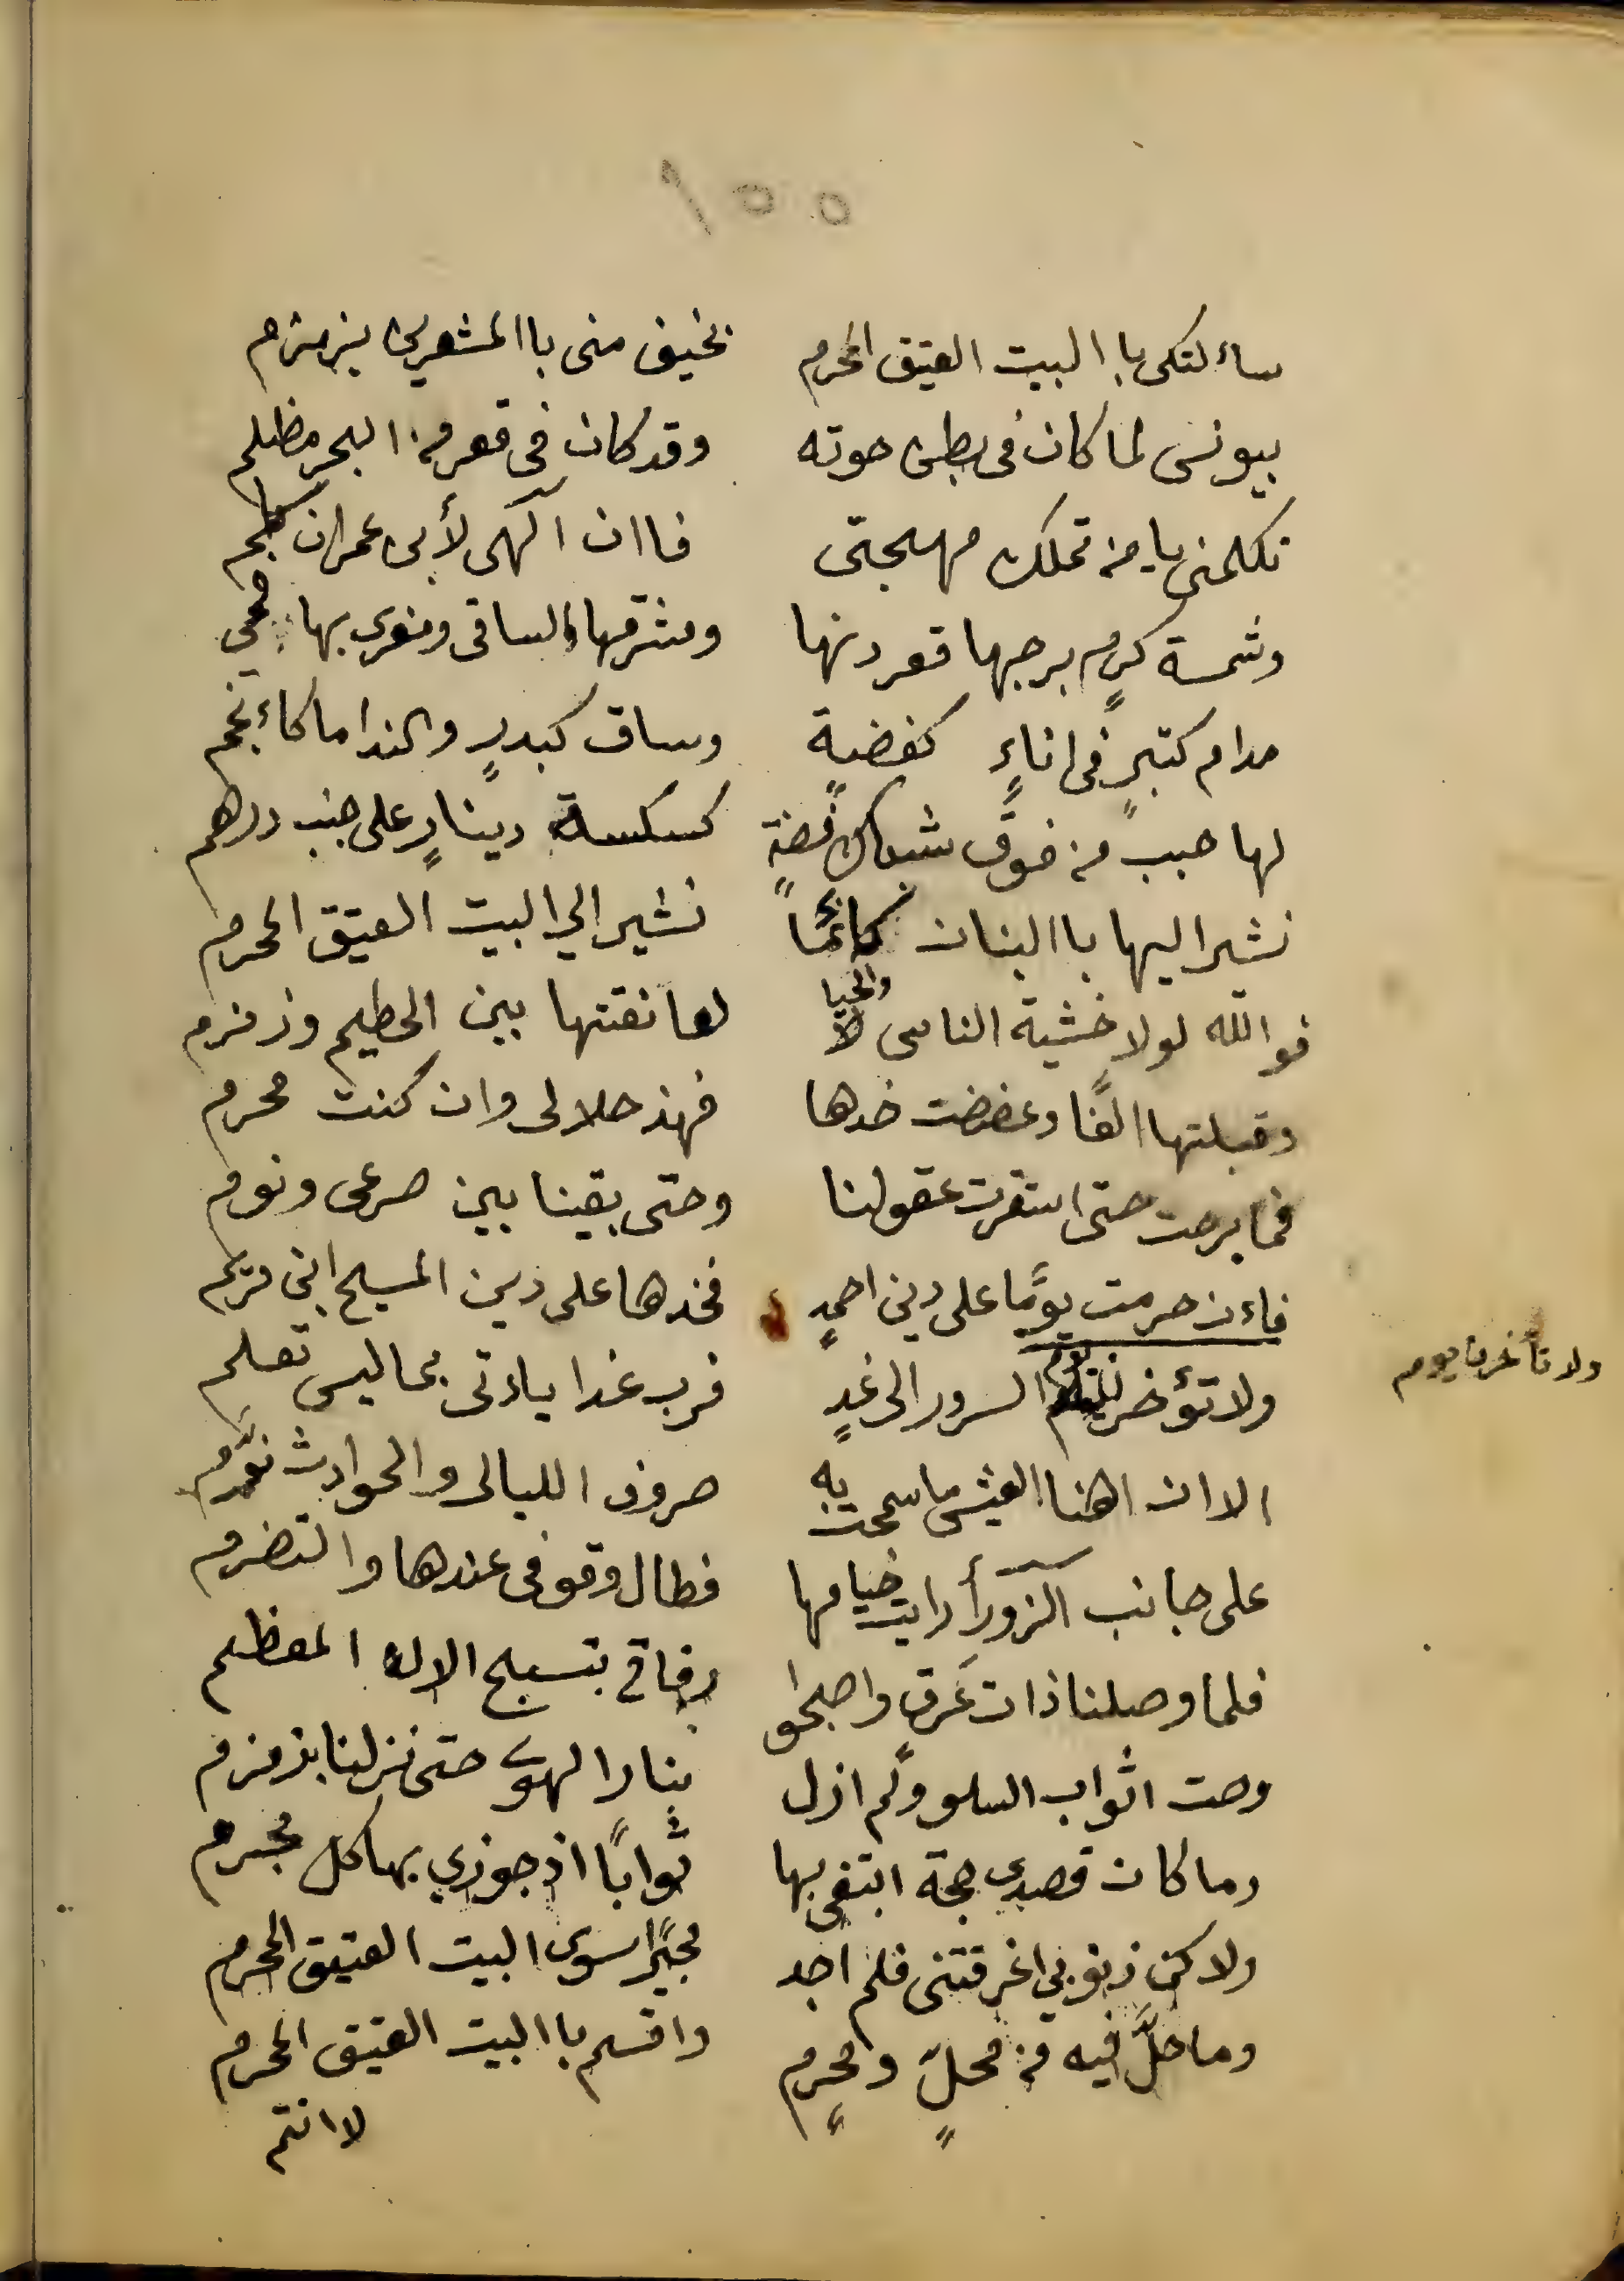 ١٥٥
ساءلتكى باالبيت العتيق المحرم نخيف منى باالمشعرين بزمزم
بيونس لما كان فى بطن حوته وقد كان فى قعر من البحر مظلم
تكلمنى يا من تملك مهجتى فاان آلهى لأبن عمران كلم
وشمسة كرمٍ برجها قعر دنها ومشرقها الساقى ومغرىبها فمي
مدام كتبرٍ فى اناءٍ كفضةٍ وساق كبدرٍ والنداما كاءنجم
لها حبب من فوق شباك فضةٍ كسكسة دينارٍ على جنب درهم
نشير اليها باالبنان كأنما نشير الي البيت العتيق المحرم
فوالله لولا خشية الناس والحيا لعانقتها بين الحطيم وزمزم
وقبلتها الفًا وعضضت خدها فهذ حلالى وان كنت محرم
فما برحت حتى استقرت عقولنا وحتى بقينا بين صرعى ونوم
فاءن حرمت يومًا على دين احمدٍ فخذها على دين المسيح ابن مريم
ولا تؤخر يوم السرور الى غدٍ فرب غدا ياءتى بما ليس تعلم
ولا تأخرن يوم
الا ان اهنا العيش ما سمحت به صروف الليالى والحوادث نوّم
على جانب الزورآ رايت خيامها فطال وقوفى عندها والتضرم
فلما وصلنا ذات عَرق واصبحو رفاقي بتسبيح الاله المعظم
وصت اثواب السلو ولم ازل بنار الهوى حتى نزلنا بزمزم
وما كان قصدى حجة ابتغى بها ثوابًا اذ جوزي بها كل مجرم
ولاكن ذنوبي اغرقتنى فلم اجد مجيرًا سوى البيت العتيق المحرم
وما حلّ فيه من محلٍّ ومحرمٍ واقسم باالبيت العتيق المحرم
لاانتم